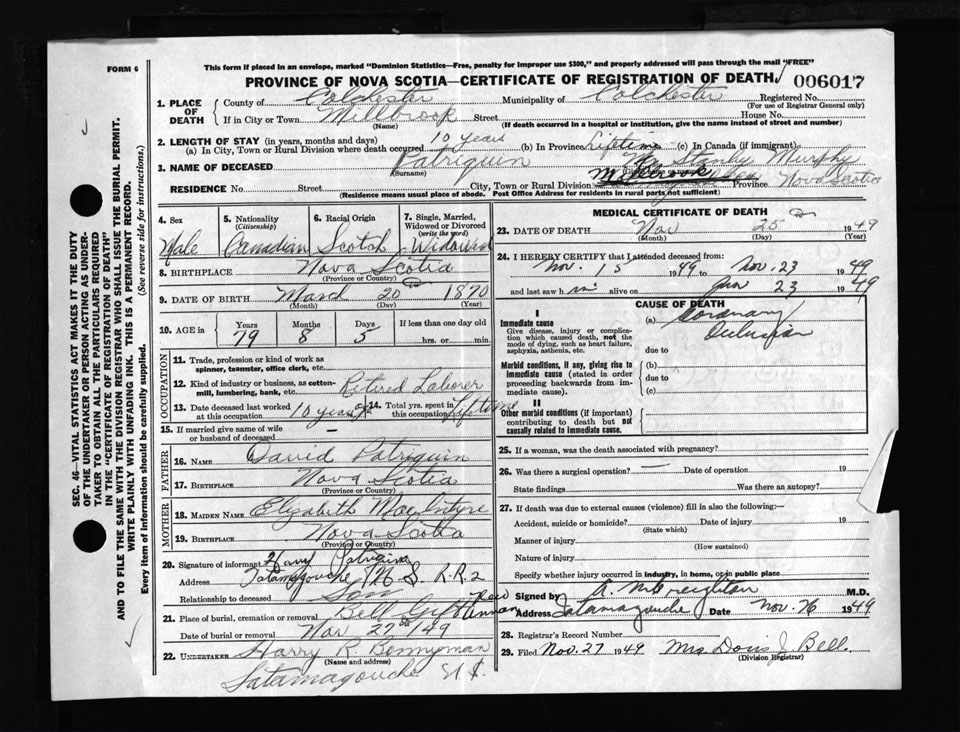 FORM 6
This form if placed in an envelope, marked "Dominion Statistics—Free, penalty for improper use $300," and properly addressed will pass through the mail "FREE"
PROVINCE OF NOVA SCOTIA—CERTIFICATE OF REGISTRATION OF DEATH
006017
1. PLACE OF DEATH County of Colchester Municipality of Colchester Registered No. (For use of Registrar General only)
If in City or Town Millbrook (Name) Street House No.
(If death occurred in a hospital or institution, give the name instead of street and number)
2. LENGTH OF STAY (in years, months and days)
(a) In City, Town or Rural Division where death occurred 10 years (b) In Province Lifetime (c) In Canada (if immigrant)
3. NAME OF DECEASED Patriquin (Surname) Wm Stanley Murphy
RESIDENCE No. Street City, Town or Rural Division Millbrook Province Nova Scotia
(Residence means usual place of abode. Post Office Address for residents in rural parts not sufficient)
4. Sex Male
5. Nationality (Citizenship) Canadian
6. Racial Origin Scotch
7. Single, Married, Widowed or Divorced (write the word) Widowed
8. BIRTHPLACE Nova Scotia (Province or Country)
9. DATE OF BIRTH March (Month) 20 (Day) 1870 (Year)
10. AGE in Years 79 Months 8 Days 5 If less than one day old hrs. or min.
OCCUPATION
11. Trade, profession or kind of work as spinner, teamster, office clerk, etc.
12. Kind of industry or business, as cotton-mill, lumbering, bank, etc. Retired Laborer
13. Date deceased last worked at this occupation 10 years ago
14. Total yrs. spent in this occupation Lifetime
15. If married give name of wife or husband of deceased —
FATHER
16. NAME David Patriquin
17. BIRTHPLACE Nova Scotia (Province or Country)
MOTHER
18. MAIDEN NAME Elizabeth MacIntyre
19. BIRTHPLACE Nova Scotia (Province or Country)
20. Signature of informant Harry Patriquin
Address Tatamagouche N.S. R.R.2
Relationship to deceased Son
21. Place of burial, cremation or removal Bell New Annan
Date of burial or removal Nov 27th/49
22. UNDERTAKER Harry R. Bennyman
(Name and address)
Tatamagouche N.S.
MEDICAL CERTIFICATE OF DEATH
23. DATE OF DEATH Nov (Month) 25 (Day) 1949 (Year)
24. I HEREBY CERTIFY that I attended deceased from
Nov. 15 1949 to Nov. 23 1949
and last saw him alive on Nov 23 1949
CAUSE OF DEATH
I
Immediate cause
Give disease, injury or complication which caused death, not the mode of dying, such as heart failure, asphyxia, asthenia, etc.
(a) Coronary Occlusion
due to
Morbid conditions, if any, giving rise to immediate cause (stated in order proceeding backwards from immediate cause).
(b)
due to
(c)
II
Other morbid conditions (if important) contributing to death but not causally related to immediate cause.
25. If a woman, was the death associated with pregnancy?
26. Was there a surgical operation? — Date of operation 19
State findings Was there an autopsy?
27. If death was due to external causes (violence) fill in also the following:—
Accident, suicide or homicide? (State which) Date of injury 19
Manner of injury (How sustained)
Nature of injury
Specify whether injury occurred in industry, in home, or in public place
Signed by M.D.
Address Tatamagouche Date Nov. 26 1949
28. Registrar's Record Number
29. Filed Nov. 27 1949 Mrs. Doris J. Bell
(Division Registrar)
SEC. 46—VITAL STATISTICS ACT MAKES IT THE DUTY
OF THE UNDERTAKER OR PERSON ACTING AS UNDER-
TAKER TO OBTAIN ALL THE PARTICULARS REQUIRED
IN THE "CERTIFICATE OF REGISTRATION OF DEATH"
AND TO FILE THE SAME WITH THE DIVISION REGISTRAR WHO SHALL ISSUE THE BURIAL PERMIT.
WRITE PLAINLY WITH UNFADING INK. THIS IS A PERMANENT RECORD.
Every item of information should be carefully supplied. (See reverse side for instructions.)